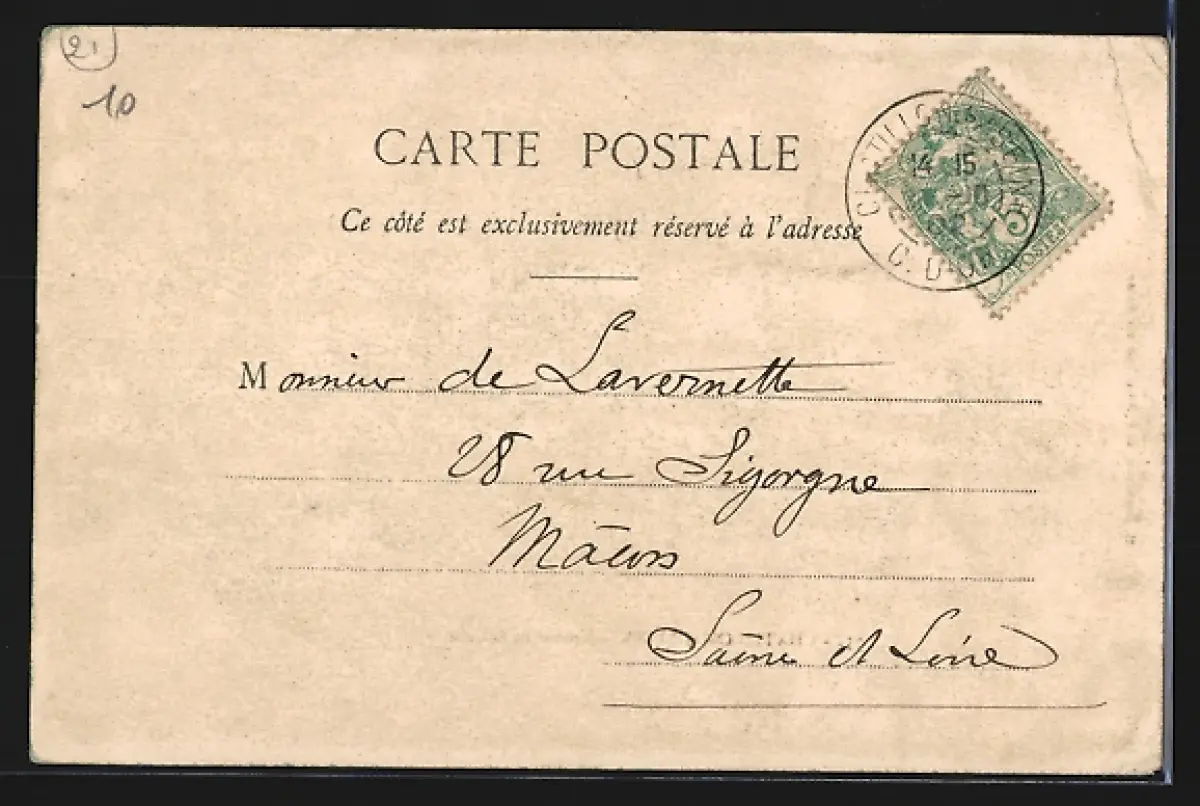 21
10
CARTE POSTALE
Ce côté est exclusivement réservé à l'adresse
CHATILLON-S-SEINE
14 15
C. D'OR
5
Monsieur de Lavernette
28 rue Sigorgne
Mâcon
Saône et Loire